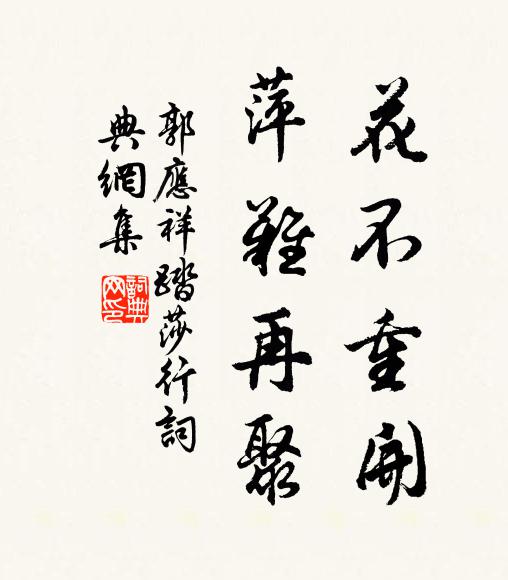 花不重開
萍難再聚
郭應祥踏莎行詞
典網集
詞典網印